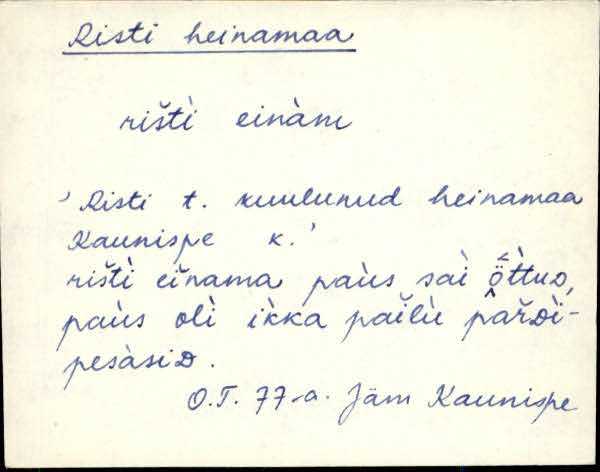 Risti heinamaa
rišti̇̀ einàm
' Risti t. kuulunud heinamaa
Kaunispe k. '
rišti̇̀ eǐnama paùs sai̇̀ öt̀tud,
paùs oli̇̀ ik̀ka paǐlù pärdi̇̀-
pesàsid.
O.T. 77-a. Jäm Kaunispe